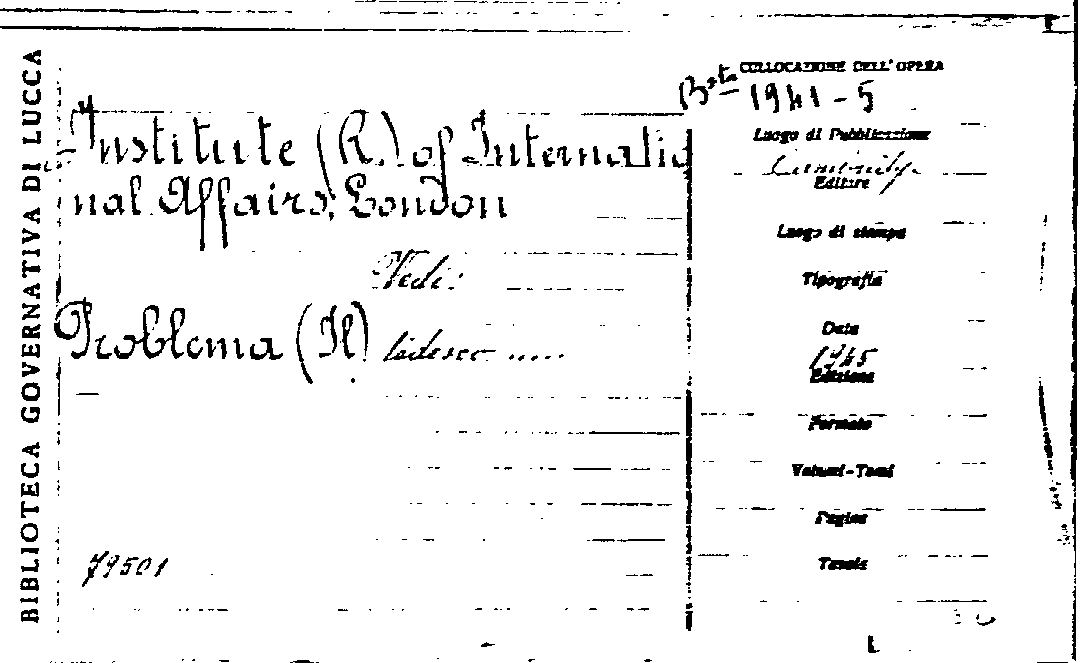 BIBLIOTECA GOVERNATIVA DI LUCCA
Institute (R.) of Internatio
nal Affairs, London
Vedi:
Problema (Il) tedesco ....
79501
COLLOCAZIONE DELL'OPERA
Bsta 1941-5
Luogo di Pubblicazione
Editore
Luogo di stampa
Tipografia
Data
1945
Edizione
Formato
Volumi-Tomi
Pagine
Tavole